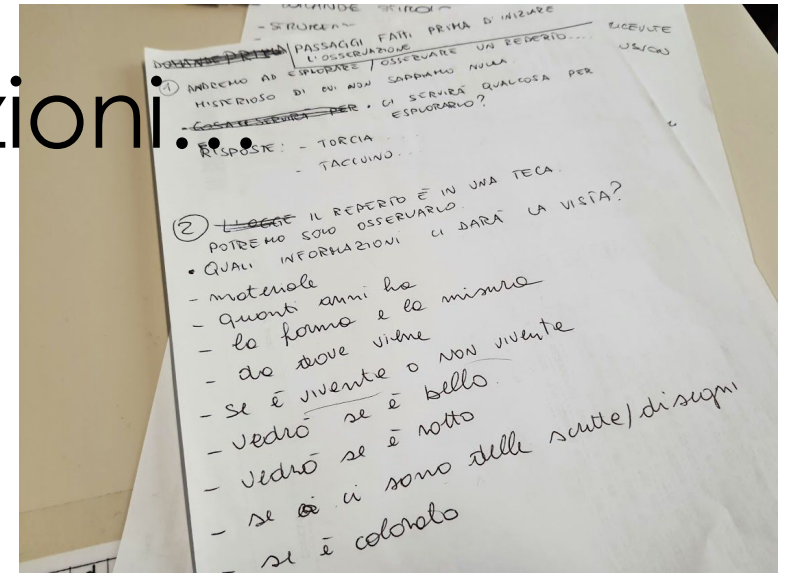 zioni...
- STRUMEN
DOMANDE PRIMA PASSAGGI FATTI PRIMA D'INIZIARE
L'OSSERVAZIONE
RICEVUTE
① ANDREMO AD ESPLORARE / OSSERVARE UN REPERTO....
MISTERIOSO DI CUI NON SAPPIAMO NULLA
- COSA CI SERVIRÀ PER • CI SERVIRÀ QUALCOSA PER
ESPLORARLO?
RISPOSTE: - TORCIA
- TACCUINO...
② L'OGGE IL REPERTO È IN UNA TECA.
POTREMO SOLO OSSERVARLO.
• QUALI INFORMAZIONI CI DARÀ LA VISTA?
- materiale
- quanti anni ha
- la forma e la misura
- da dove viene
- se è vivente o non vivente
- vedrò se è bello.
- vedrò se è rotto
- se ci sono delle scritte/disegni
- se è colorato